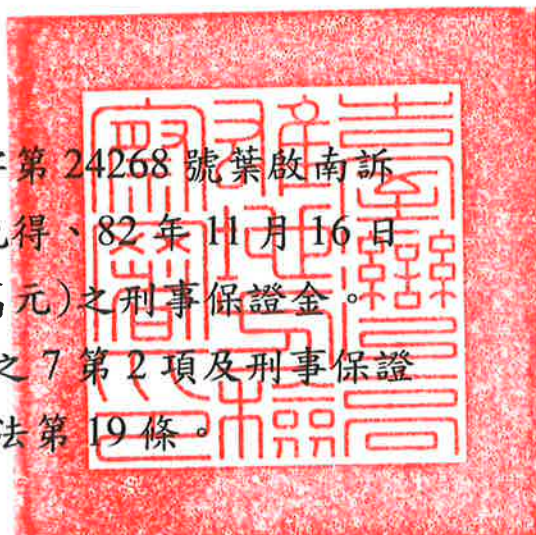 第 24268 號葉啟南訴
得、82 年 11 月 16 日
元)之刑事保證金。
之 7 第 2 項及刑事保證
法第 19 條。